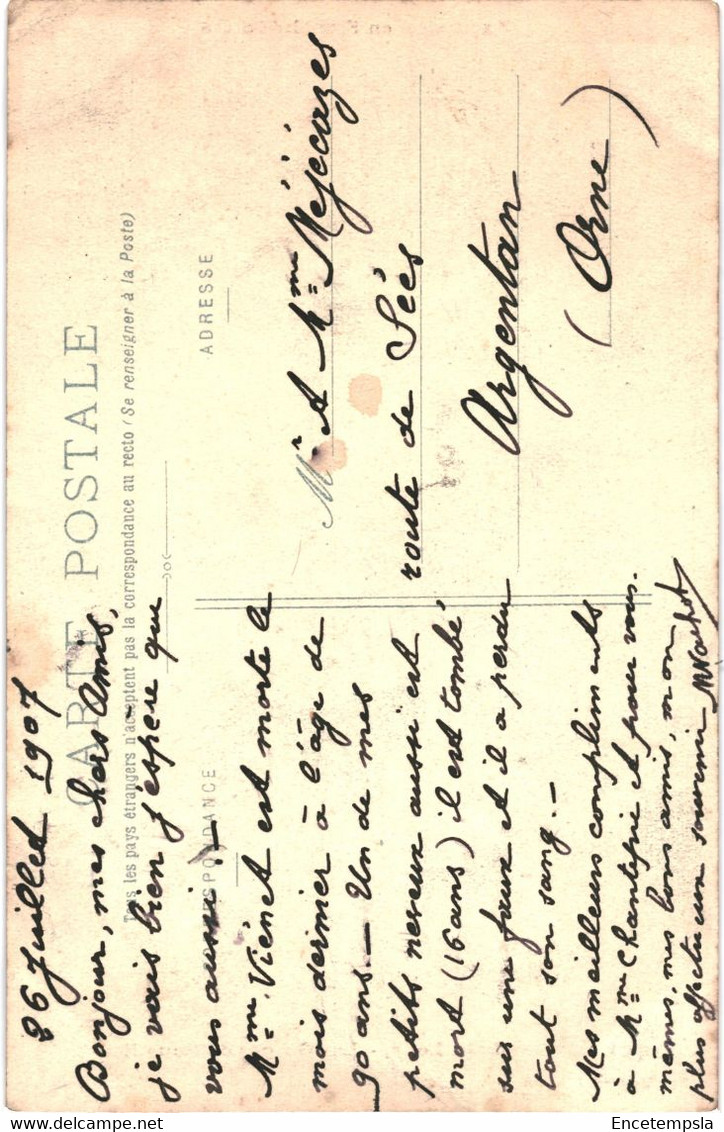 CARTE POSTALE
Tous les pays étrangers n'acceptent pas la correspondance au recto (Se renseigner à la Poste)
CORRESPONDANCE
26 Juillet 1907
Bonjour, mes chers Amis,
je vais bien j'espère que
vous aussi :-
Mme Viénet est morte le
mois dernier à l'âge de
90 ans. - Un de mes
petits neveux aussi est
mort (16 ans) il est tombé
sur une faux et il a perdu
tout son sang. -
Mes meilleurs compliments
à Mme Chantepie et pour vous.
mêmes, mes bons amis, mon
plus affectueux souvenir
ADRESSE
Mr & Mme Méjécazes
route de Sées
Argentan
(Orne)
Encetempsla